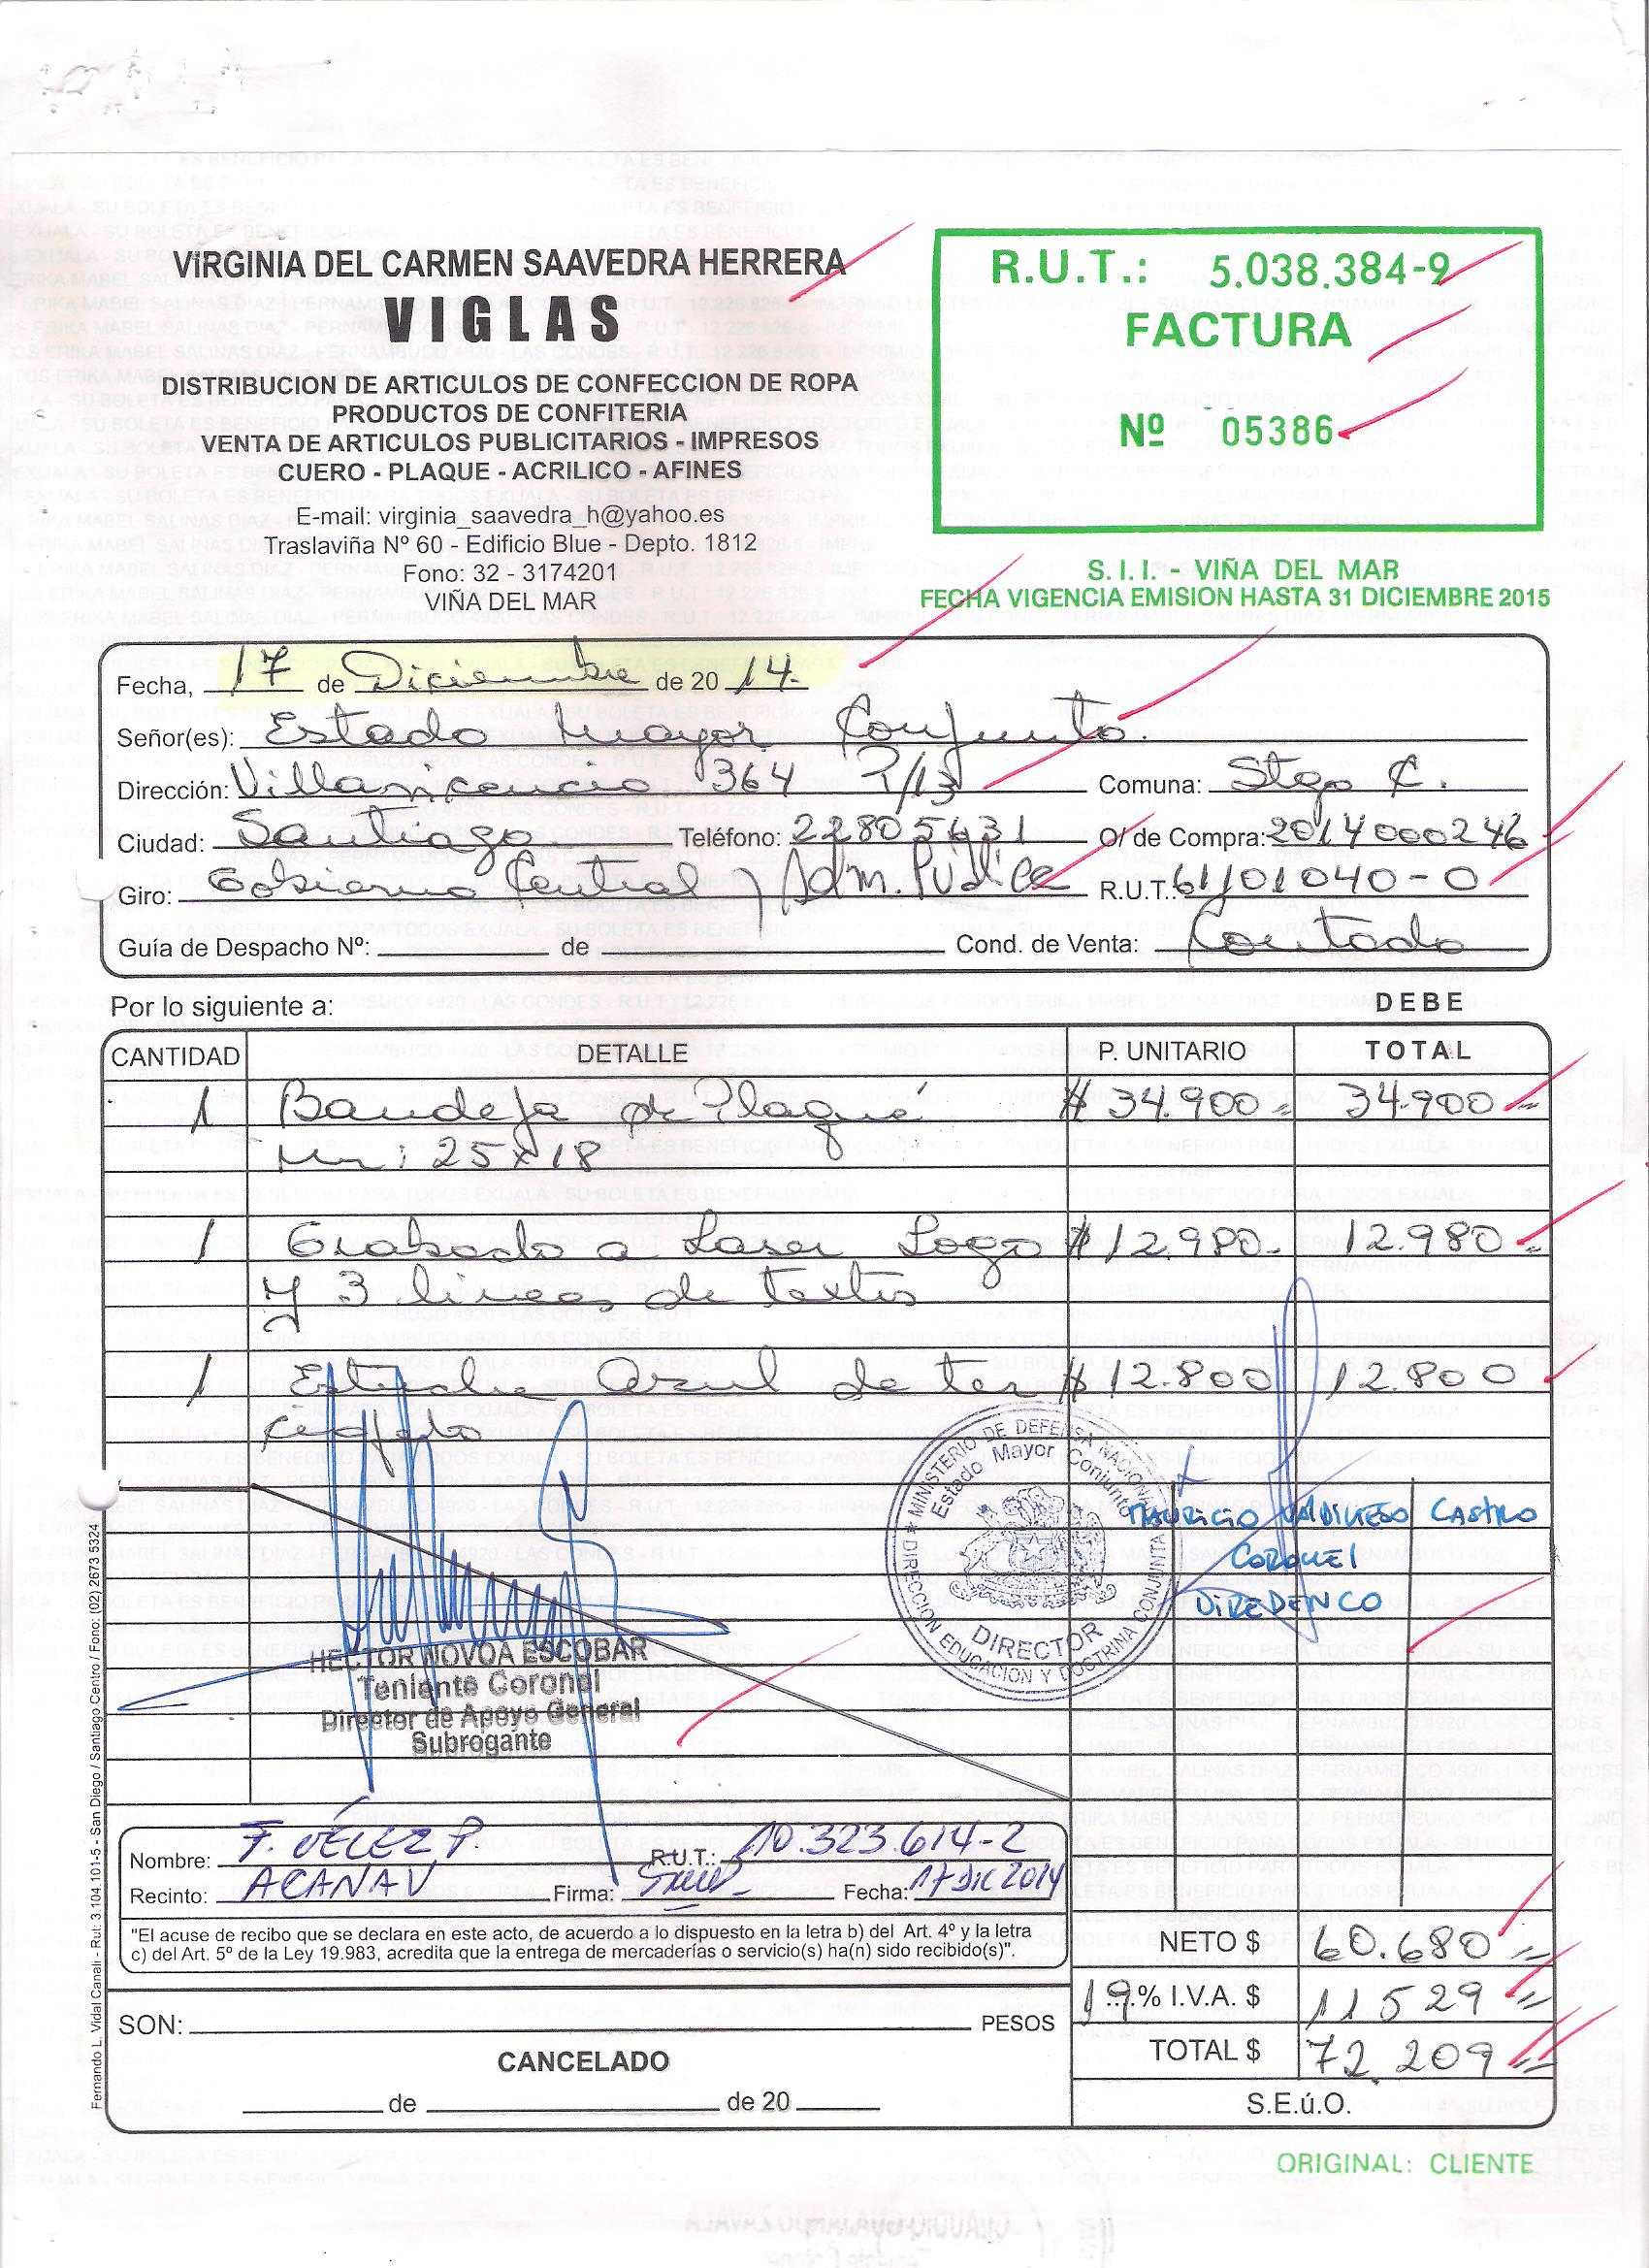 VIRGINIA DEL CARMEN SAAVEDRA HERRERA
VIGLAS
DISTRIBUCION DE ARTICULOS DE CONFECCION DE ROPA
PRODUCTOS DE CONFITERIA
VENTA DE ARTICULOS PUBLICITARIOS - IMPRESOS
CUERO - PLAQUE - ACRILICO - AFINES
E-mail: virginia_saavedra_h@yahoo.es
Traslaviña Nº 60 - Edificio Blue - Depto. 1812
Fono: 32 - 3174201
VIÑA DEL MAR
R.U.T.: 5.038.384-9
FACTURA
Nº 05386
S. I. I. - VIÑA DEL MAR
FECHA VIGENCIA EMISION HASTA 31 DICIEMBRE 2015
Fecha, 17 de Diciembre de 20 14.
Señor(es): Estado Mayor Conjunto
Dirección: 364 P/13 Comuna: Stgo C.
Ciudad: Santiago Teléfono: 22805431 O/ de Compra: 2014000246
Giro: Gobierno Central y Adm. R.U.T.: 61101040-0
Guía de Despacho Nº: de Cond. de Venta: Contado
Por lo siguiente a: DEBE
CANTIDAD DETALLE P. UNITARIO TOTAL
1 Bandeja de Plaqué $ 34.900= 34.900=
25x18
1 Grabado a Laser Logo $ 12.980- 12.980-
y 3 lineas de texto
1 Estuche azul de ter $ 12.800 12.800
ciopelo
MINISTERIO DE DEFENSA NACIONAL
Estado Mayor Conjunto
DIRECTOR
DIRECCION EDUCACION Y DOCTRINA CONJUNTA
MAURICIO VALDIVIESO CASTRO
CORONEL
DIREDENCO
HECTOR NOVOA ESCOBAR
Teniente Coronel
Director de Apoyo General
Subrogante
Nombre: F. VÉLEZ P. R.U.T.: 10.323.614-2
Recinto: ACANAV Firma: Fecha: 17 DIC 2014
"El acuse de recibo que se declara en este acto, de acuerdo a lo dispuesto en la letra b) del Art. 4º y la letra
c) del Art. 5º de la Ley 19.983, acredita que la entrega de mercaderías o servicio(s) ha(n) sido recibido(s)".
NETO $ 60.680=
19.% I.V.A. $ 11529=
TOTAL $ 72.209=
SON: PESOS
CANCELADO
de de 20
S.E.ú.O.
ORIGINAL: CLIENTE
Fernando L. Vidal Canali - Rut: 3.104.101-5 - San Diego / Santiago Centro / Fono: (02) 2673 5324